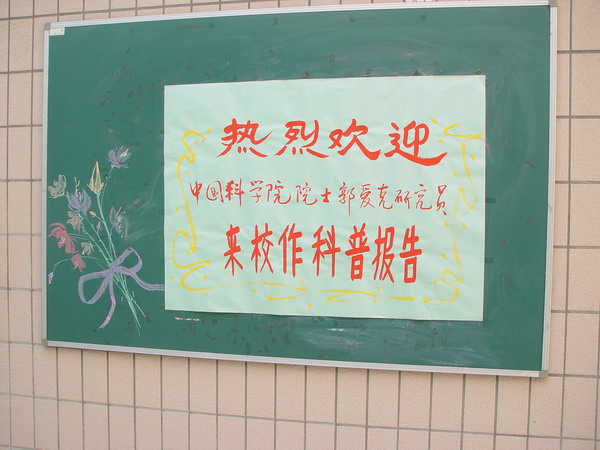 热烈欢迎
中国科学院院士郭爱克研究员
来校作科普报告